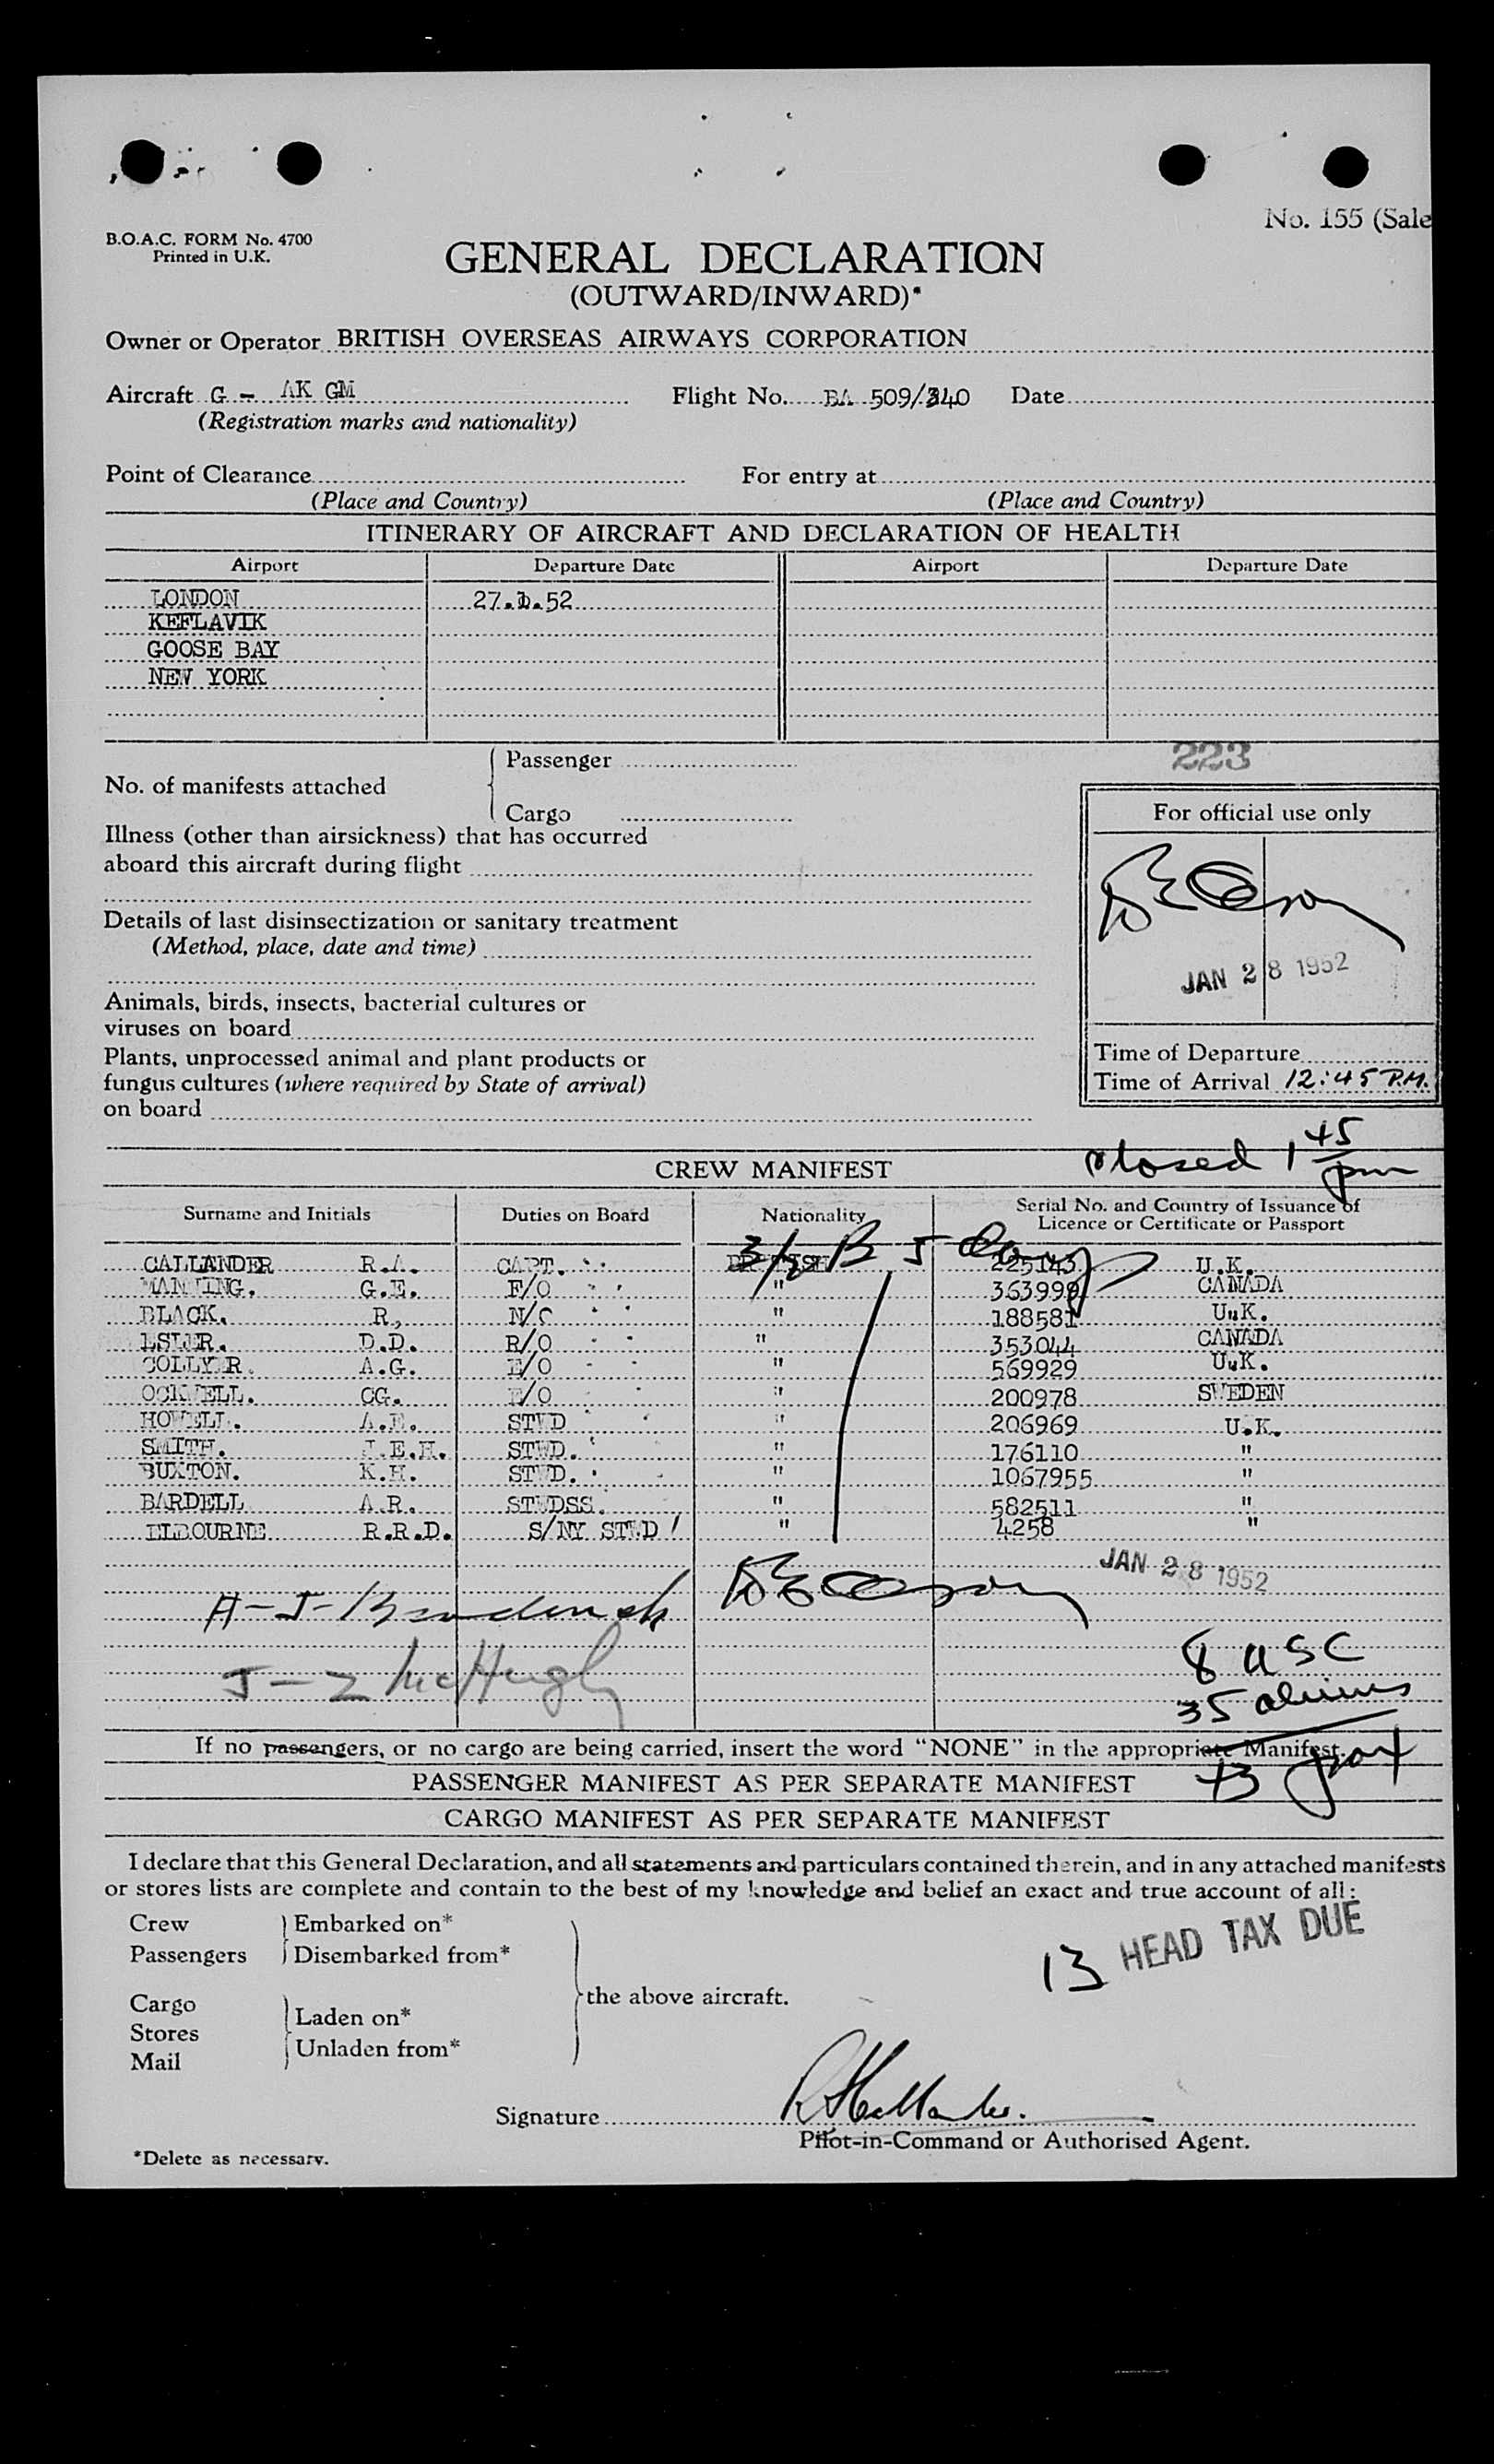 No. 155 (Sale
B.O.A.C. FORM No. 4700
Printed in U.K.
GENERAL DECLARATION
(OUTWARD/INWARD)*
Owner or Operator BRITISH OVERSEAS AIRWAYS CORPORATION
Aircraft G - AK GM Flight No. BA 509/340 Date
(Registration marks and nationality)
Point of Clearance For entry at
(Place and Country) (Place and Country)
ITINERARY OF AIRCRAFT AND DECLARATION OF HEALTH
Airport Departure Date Airport Departure Date
LONDON 27.1.52
KEFLAVIK
GOOSE BAY
NEW YORK
223
No. of manifests attached { Passenger
Cargo
Illness (other than airsickness) that has occurred
aboard this aircraft during flight
Details of last disinsectization or sanitary treatment
(Method, place, date and time)
Animals, birds, insects, bacterial cultures or
viruses on board
Plants, unprocessed animal and plant products or
fungus cultures (where required by State of arrival)
on board
For official use only
JAN 28 1952
Time of Departure
Time of Arrival 12:45 P.M.
closed 1 45 pm
CREW MANIFEST
Surname and Initials Duties on Board Nationality Serial No. and Country of Issuance of
Licence or Certificate or Passport
CALLANDER R.A. CAPT. BRITISH 225143 U.K.
MANNING. G.E. F/O " 363999 CANADA
BLACK. R, N/O " 188581 U.K.
D.D. R/O " 353044 CANADA
COLLYER. A.G. E/O " 569929 U.K.
OCKWELL. CG. E/O " 200978 SWEDEN
HOWELL. A.E. STWD " 206969 U.K.
SMITH. E.H. STWD. " 176110 "
BUXTON. K.H. STWD. " 1067955 "
BARDELL A.R. STWDSS. " 582511 "
ELBOURNE R.R.D. S/NY STWD ! " 4258 "
JAN 28 1952
J-2 McHugh
8 USC
35 aliens
If no passengers, or no cargo are being carried, insert the word “NONE” in the appropriate Manifest.
PASSENGER MANIFEST AS PER SEPARATE MANIFEST
CARGO MANIFEST AS PER SEPARATE MANIFEST
I declare that this General Declaration, and all statements and particulars contained therein, and in any attached manifests
or stores lists are complete and contain to the best of my knowledge and belief an exact and true account of all:
Crew } Embarked on*
Passengers } Disembarked from*
13 HEAD TAX DUE
the above aircraft.
Cargo } Laden on*
Stores
Mail } Unladen from*
Signature
Pilot-in-Command or Authorised Agent.
*Delete as necessary.